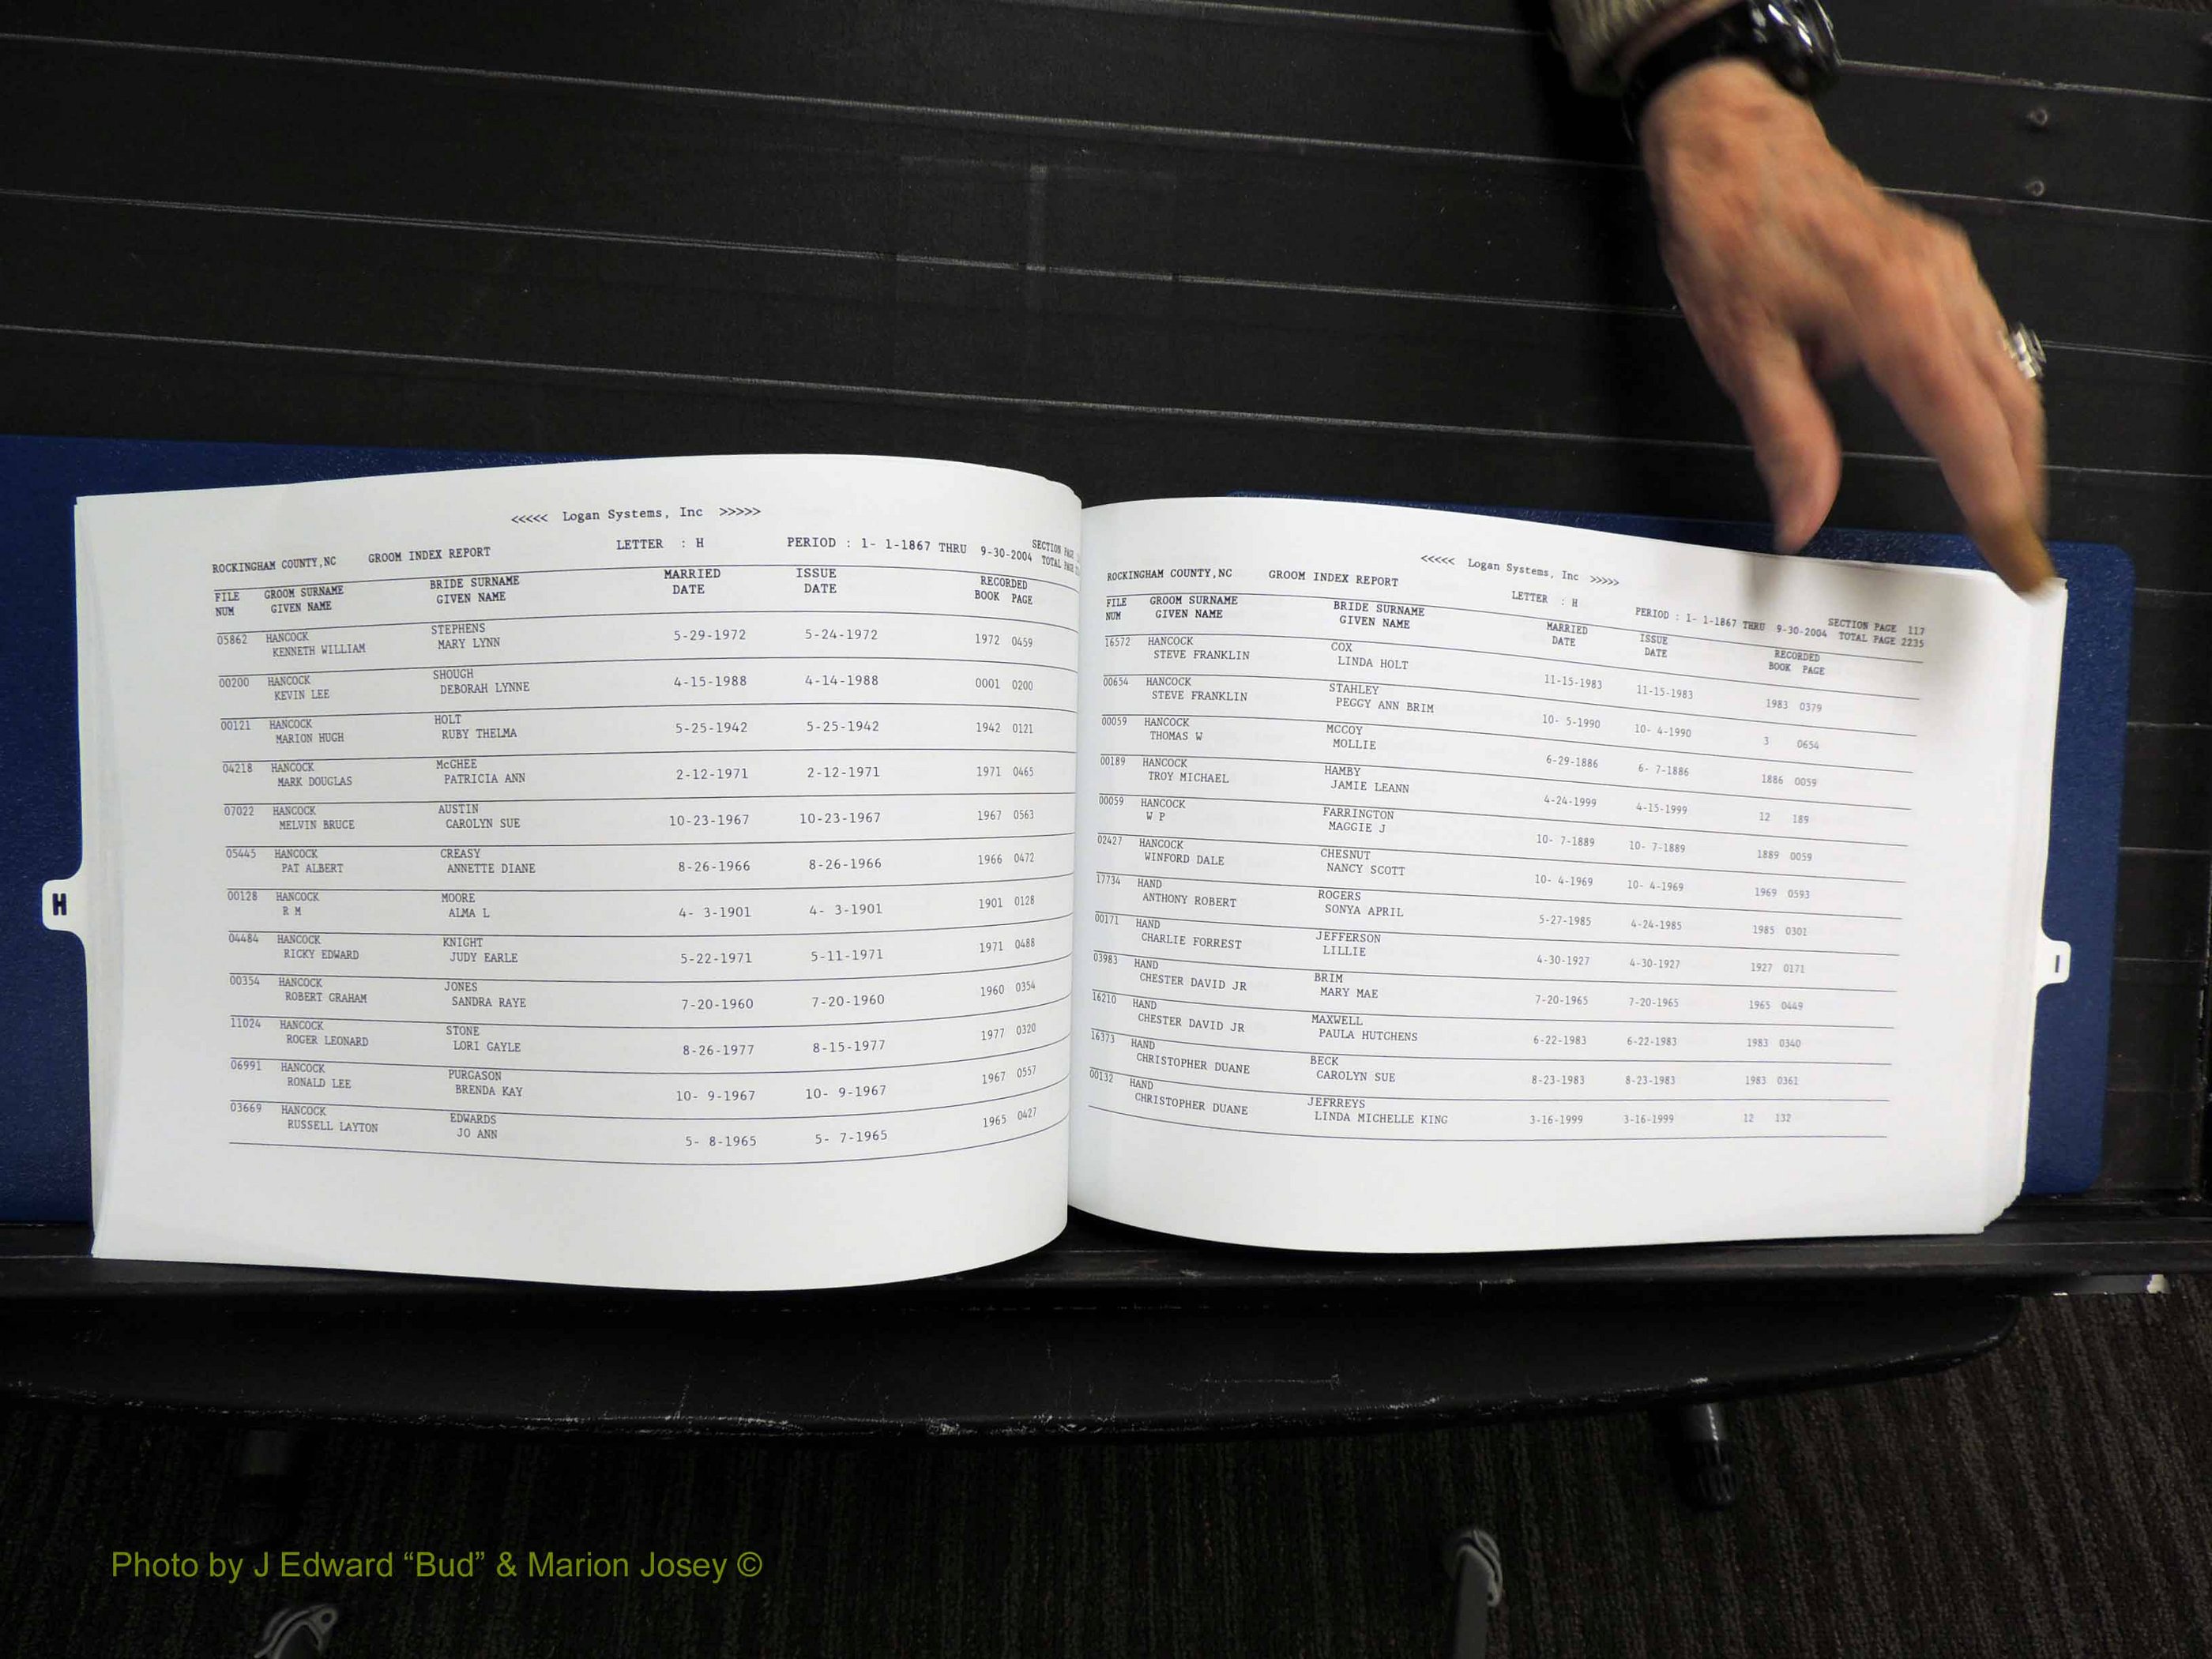 <<<<< Logan Systems, Inc >>>>>
ROCKINGHAM COUNTY,NC GROOM INDEX REPORT LETTER : H PERIOD : 1- 1-1867 THRU 9-30-2004 SECTION PAGE
TOTAL PAGE
FILE GROOM SURNAME BRIDE SURNAME MARRIED ISSUE RECORDED
NUM GIVEN NAME GIVEN NAME DATE DATE BOOK PAGE
05862 HANCOCK STEPHENS 5-29-1972 5-24-1972 1972 0459
KENNETH WILLIAM MARY LYNN
00200 HANCOCK SHOUGH 4-15-1988 4-14-1988 0001 0200
KEVIN LEE DEBORAH LYNNE
00121 HANCOCK HOLT 5-25-1942 5-25-1942 1942 0121
MARION HUGH RUBY THELMA
04218 HANCOCK McGHEE 2-12-1971 2-12-1971 1971 0465
MARK DOUGLAS PATRICIA ANN
07022 HANCOCK AUSTIN 10-23-1967 10-23-1967 1967 0563
MELVIN BRUCE CAROLYN SUE
05445 HANCOCK CREASY 8-26-1966 8-26-1966 1966 0472
PAT ALBERT ANNETTE DIANE
00128 HANCOCK MOORE 4- 3-1901 4- 3-1901 1901 0128
R M ALMA L
04484 HANCOCK KNIGHT 5-22-1971 5-11-1971 1971 0488
RICKY EDWARD JUDY EARLE
00354 HANCOCK JONES 7-20-1960 7-20-1960 1960 0354
ROBERT GRAHAM SANDRA RAYE
11024 HANCOCK STONE 8-26-1977 8-15-1977 1977 0320
ROGER LEONARD LORI GAYLE
06991 HANCOCK PURGASON 10- 9-1967 10- 9-1967 1967 0557
RONALD LEE BRENDA KAY
03669 HANCOCK EDWARDS 5- 8-1965 5- 7-1965 1965 0427
RUSSELL LAYTON JO ANN
H
<<<<< Logan Systems, Inc >>>>>
ROCKINGHAM COUNTY,NC GROOM INDEX REPORT LETTER : H PERIOD : 1- 1-1867 THRU 9-30-2004 SECTION PAGE 117
TOTAL PAGE 2235
FILE GROOM SURNAME BRIDE SURNAME MARRIED ISSUE RECORDED
NUM GIVEN NAME GIVEN NAME DATE DATE BOOK PAGE
16572 HANCOCK COX 11-15-1983 11-15-1983 1983 0379
STEVE FRANKLIN LINDA HOLT
00654 HANCOCK STAHLEY 10- 5-1990 10- 4-1990 3 0654
STEVE FRANKLIN PEGGY ANN BRIM
00059 HANCOCK MCCOY 6-29-1886 6- 7-1886 1886 0059
THOMAS W MOLLIE
00189 HANCOCK HAMBY 4-24-1999 4-15-1999 12 189
TROY MICHAEL JAMIE LEANN
00059 HANCOCK FARRINGTON 10- 7-1889 10- 7-1889 1889 0059
W P MAGGIE J
02427 HANCOCK CHESNUT 10- 4-1969 10- 4-1969 1969 0593
WINFORD DALE NANCY SCOTT
17734 HAND ROGERS 5-27-1985 4-24-1985 1985 0301
ANTHONY ROBERT SONYA APRIL
00171 HAND JEFFERSON 4-30-1927 4-30-1927 1927 0171
CHARLIE FORREST LILLIE
03983 HAND BRIM 7-20-1965 7-20-1965 1965 0449
CHESTER DAVID JR MARY MAE
16210 HAND MAXWELL 6-22-1983 6-22-1983 1983 0340
CHESTER DAVID JR PAULA HUTCHENS
16373 HAND BECK 8-23-1983 8-23-1983 1983 0361
CHRISTOPHER DUANE CAROLYN SUE
00132 HAND JEFRREYS 3-16-1999 3-16-1999 12 132
CHRISTOPHER DUANE LINDA MICHELLE KING
I
Photo by J Edward “Bud” & Marion Josey ©